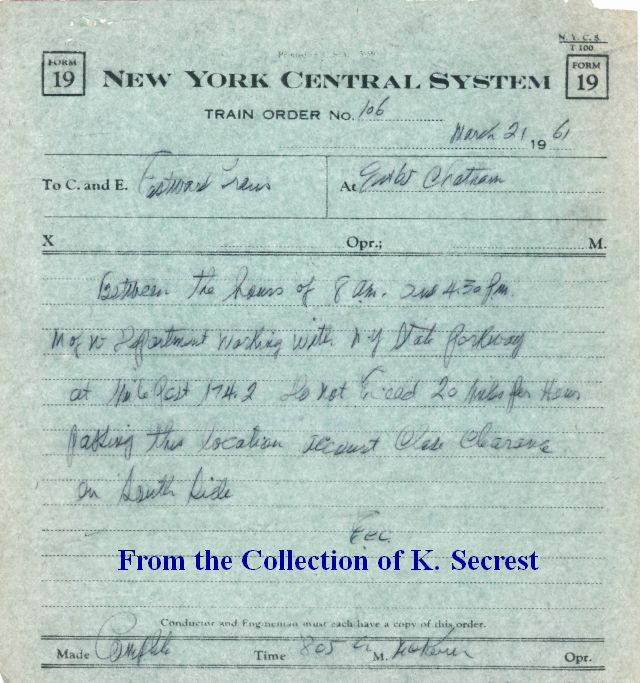 N. Y. C. S.
T 100
FORM 19
NEW YORK CENTRAL SYSTEM
FORM 19
TRAIN ORDER No. 106
March 21 1961
To C. and E. Eastward Trains At Chatham
X Opr.; M.
Between the hours of 8 am. and 4:30 Pm.
M of W Department Working With N Y State Parkway
at Mile Post 174.2 Do Not Exceed 20 Miles Per Hour
Passing this location account Close Clearance
on South Side
From the Collection of K. Secrest
Conductor and Engineman must each have a copy of this order.
Made Complete Time 805 A M. Opr.